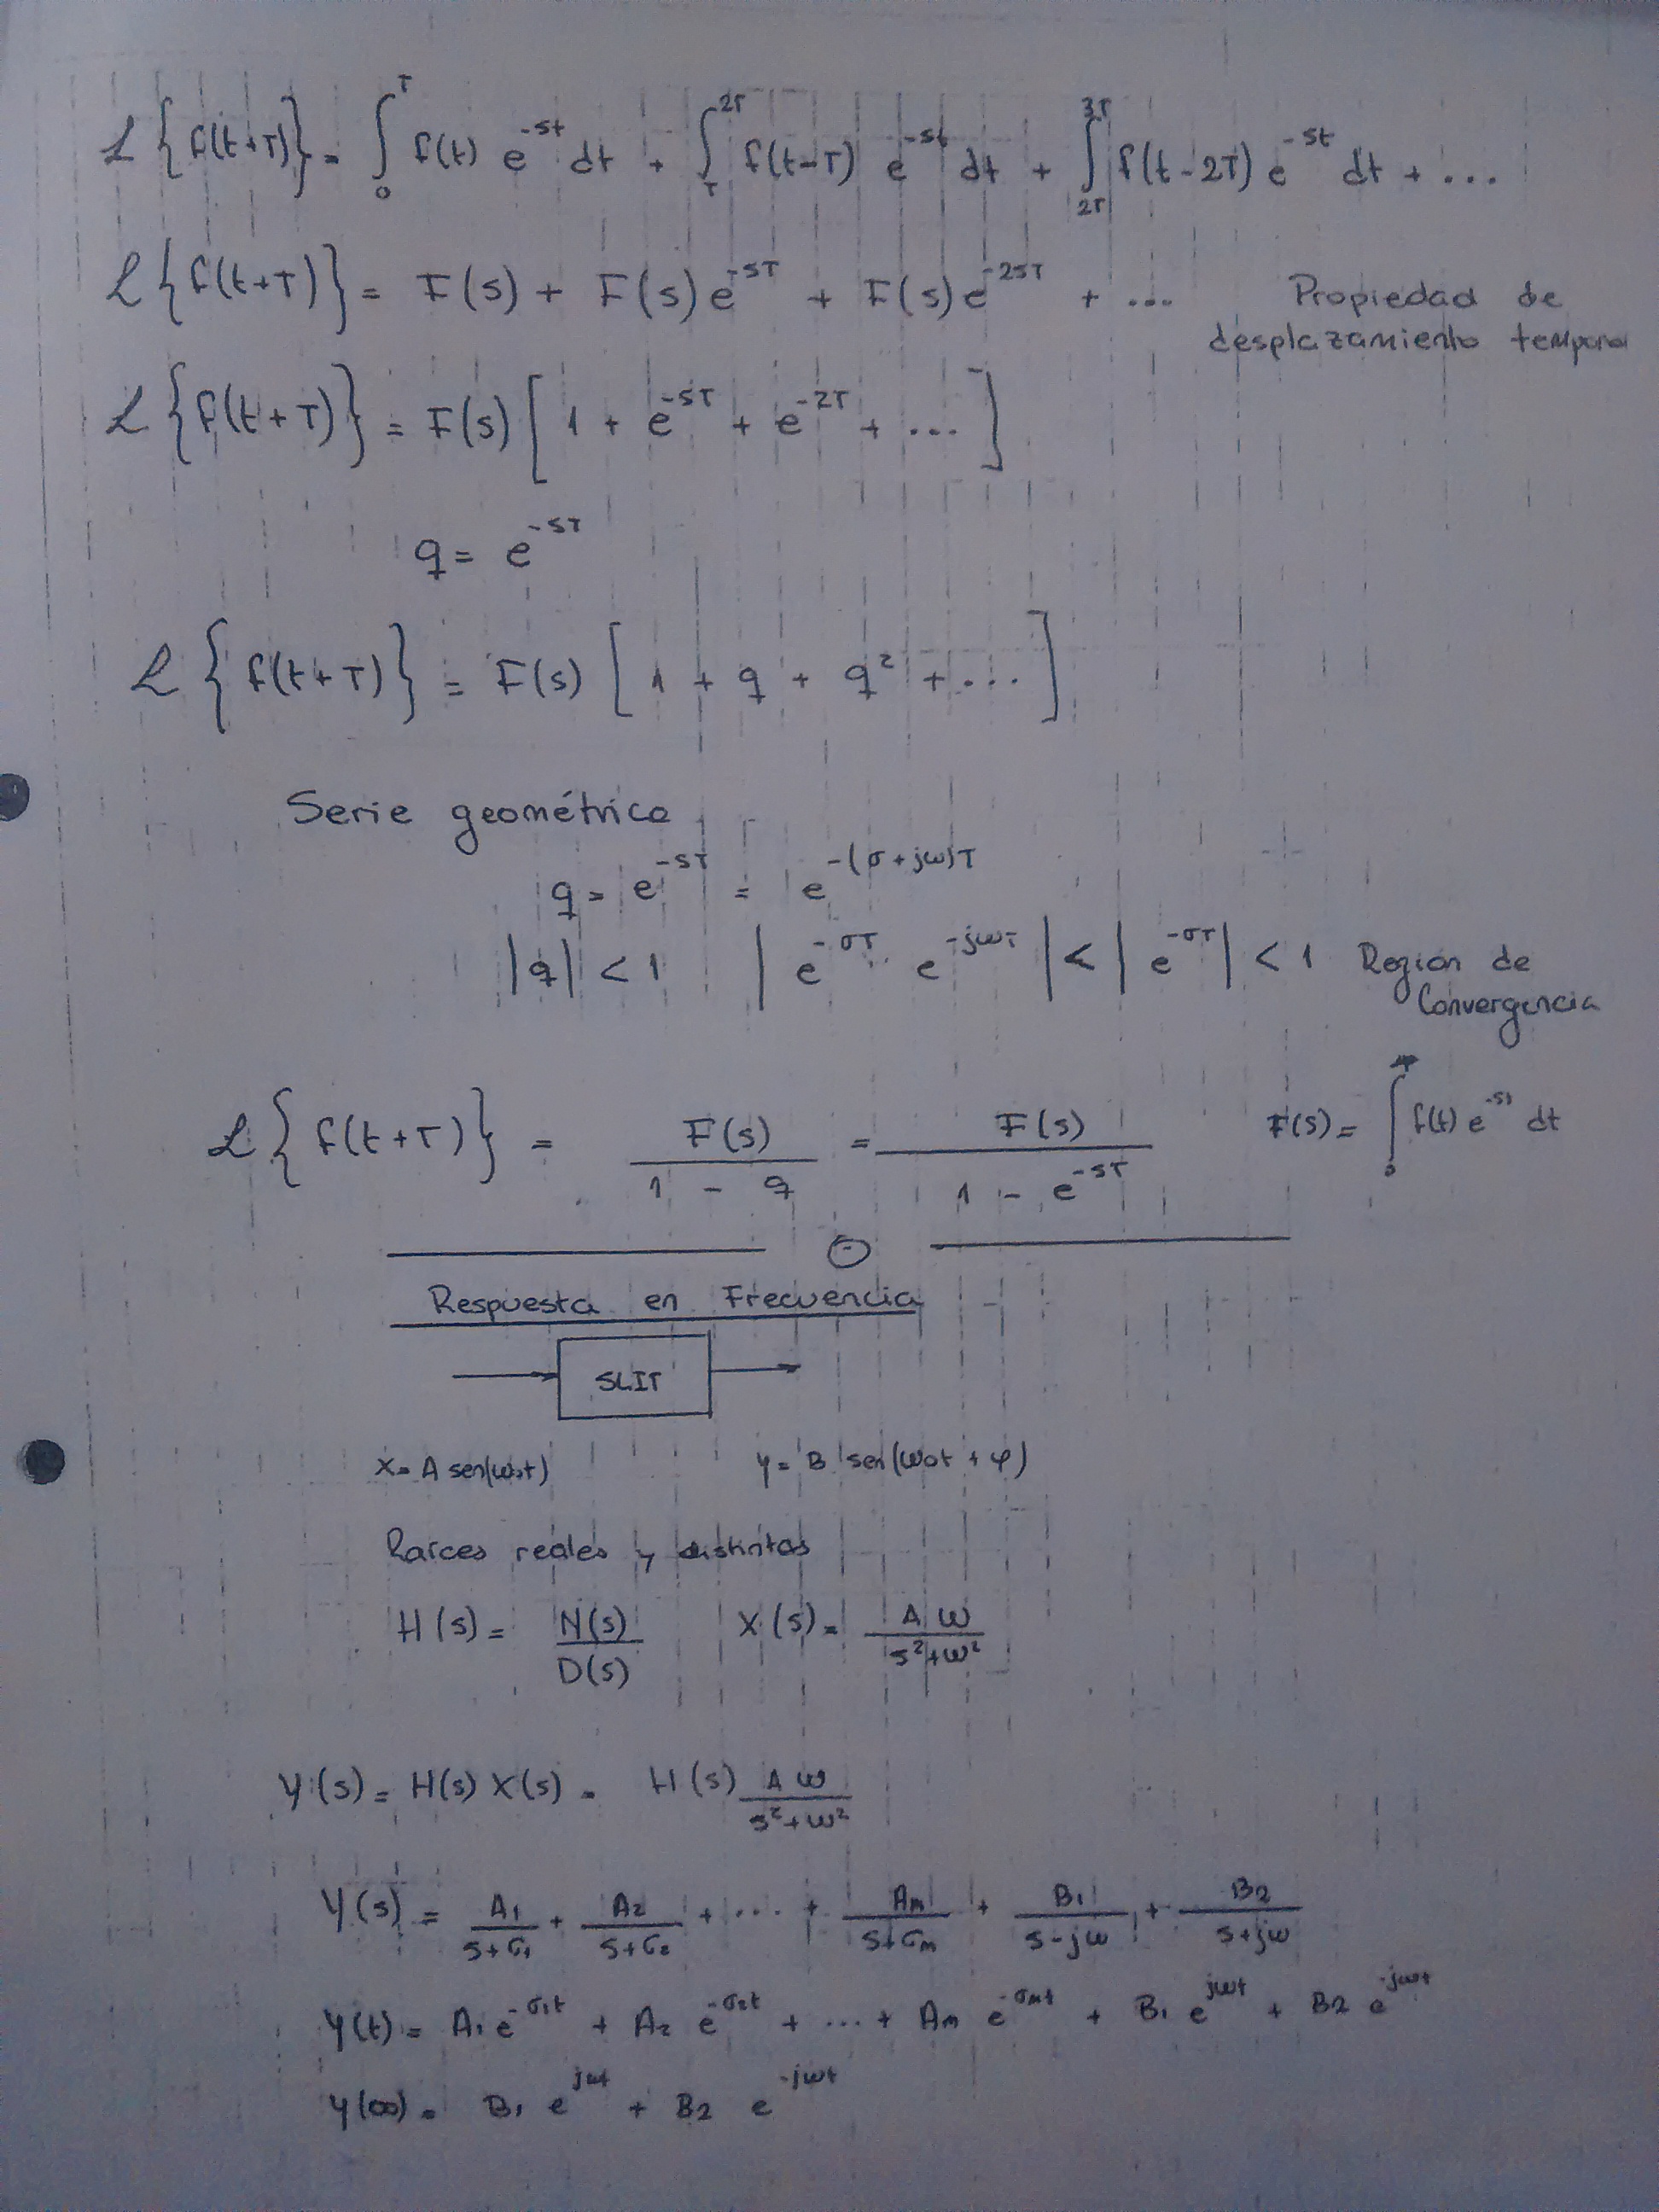 ℒ{f(t+T)} = ∫₀ᵀ f(t) e^{-st} dt + ∫_T^{2T} f(t-T) e^{-st} dt + ∫_{2T}^{3T} f(t-2T) e^{-st} dt + ...
ℒ{f(t+T)} = F(s) + F(s) e^{-sT} + F(s) e^{-2sT} + ... Propiedad de
desplazamiento temporal
ℒ{f(t+T)} = F(s) [1 + e^{-sT} + e^{-2T} + ...]
q = e^{-sT}
ℒ{f(t+T)} = F(s) [1 + q + q² + ...]
Serie geométrica
q = e^{-sT} = e^{-(σ+jω)T}
|q| < 1 |e^{-σT} · e^{-jωT}| < |e^{-σT}| < 1 Región de
Convergencia
ℒ{f(t+T)} = F(s)/(1 - q) = F(s)/(1 - e^{-sT}) F(s) = ∫₀ᵀ f(t) e^{-st} dt
Respuesta en Frecuencia
SLIT
x = A sen(ω₀t) y = B sen(ω₀t + φ)
Raíces reales y distintas
H(s) = N(s)/D(s) X(s) = Aω/(s²+ω²)
Y(s) = H(s) X(s) = H(s) Aω/(s²+ω²)
Y(s) = A₁/(s+σ₁) + A₂/(s+σ₂) + ... + Am/(s+σm) + B₁/(s-jω) + B₂/(s+jω)
y(t) = A₁ e^{-σ₁t} + A₂ e^{-σ₂t} + ... + Am e^{-σmt} + B₁ e^{jωt} + B₂ e^{-jωt}
y(∞) = B₁ e^{jωt} + B₂ e^{-jωt}